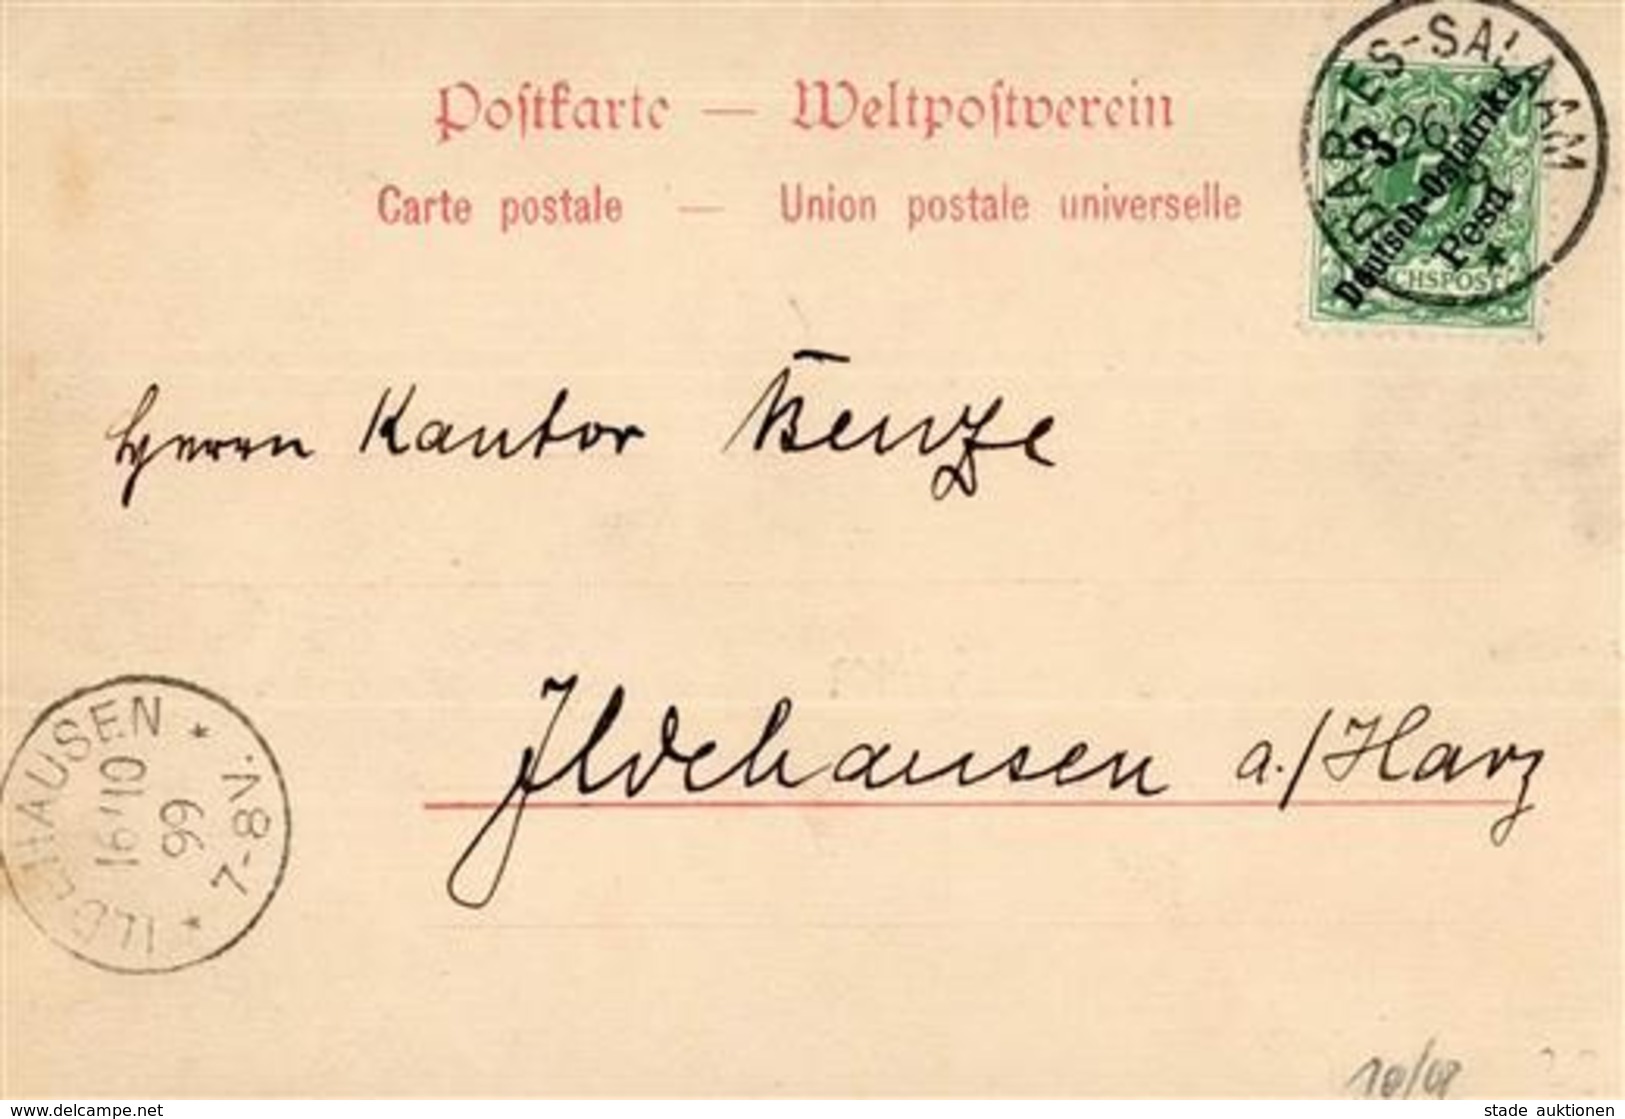 Postkarte — Weltpostverein
Carte postale — Union postale universelle
DAR-ES-SALAAM
26
3
Deutsch-Ostafrika
Pesa
REICHSPOST
Herrn Kantor Benze
Ildehausen a./Harz
ILDEHAUSEN
19.10.
99
7-8V.
10/08
stade auktionen